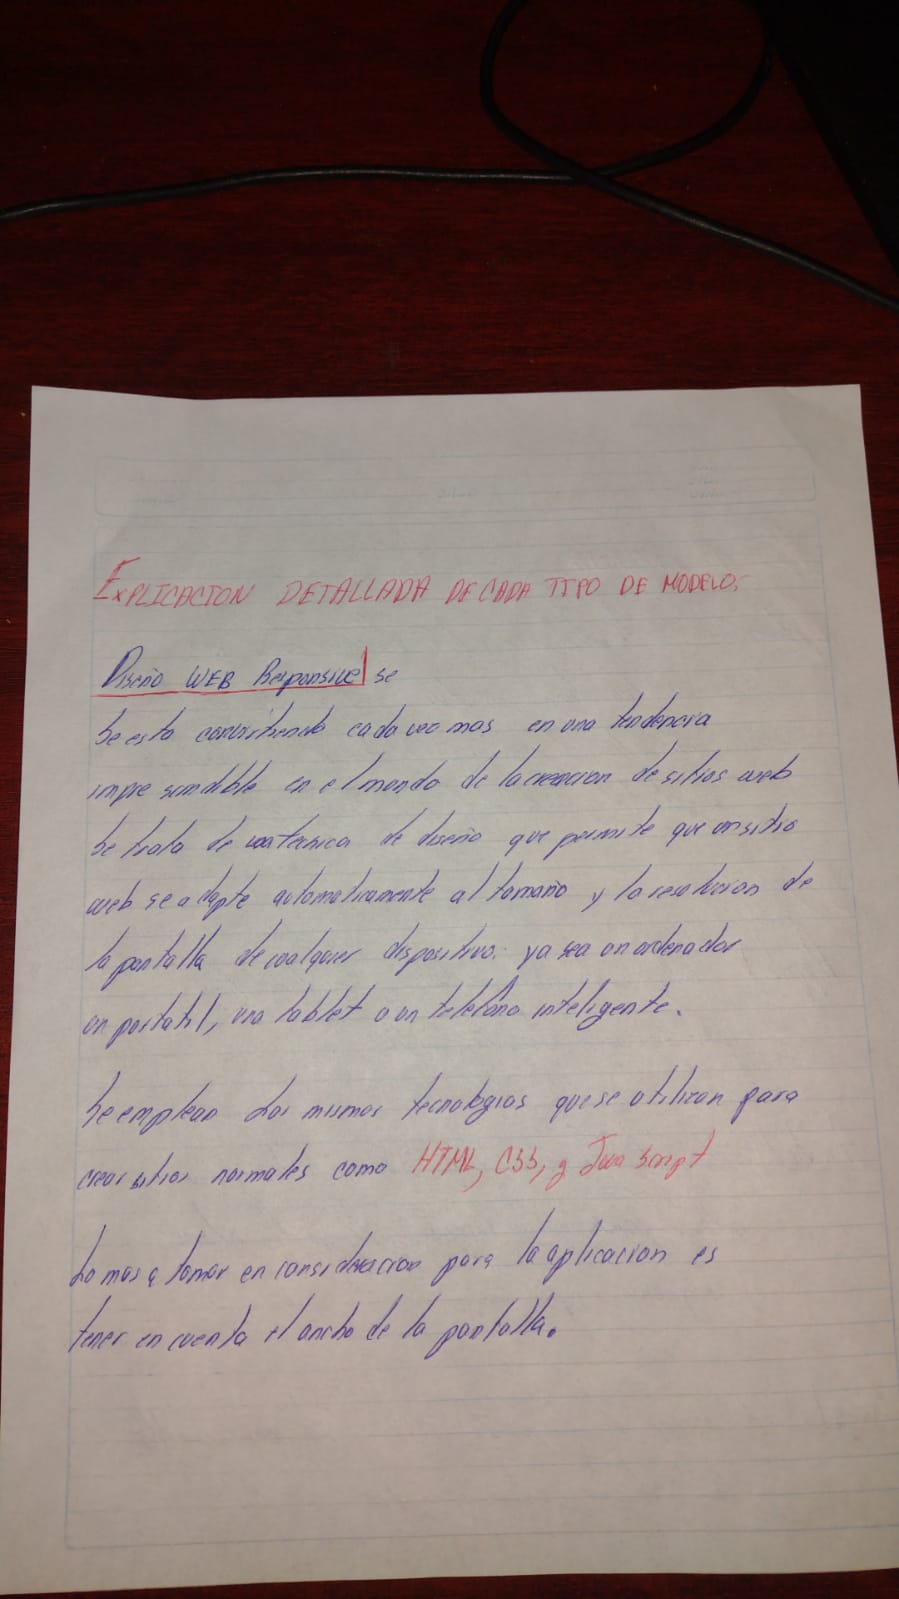 EXPLICACION DETALLADA DE CADA TIPO DE MODELO.
Diseño WEB Responsive se
se esta convirtiendo cada vez mas en una tendencia
impresindible en el mundo de la creacion de sitios web
se trata de una tecnica de diseño que permite que un sitio
web se adapte automaticamente al tamaño y la resolucion de
la pantalla de cualquier dispositivo: ya sea un ordenador
un portatil, una tablet o un telefono inteligente.
Se emplean Las mismas tecnologias que se utilizan para
crear sitios normales como HTML, CSS, y Java Script
Lo mas a tomar en consideracion para la aplicacion es
tener en cuenta el ancho de la pantalla.